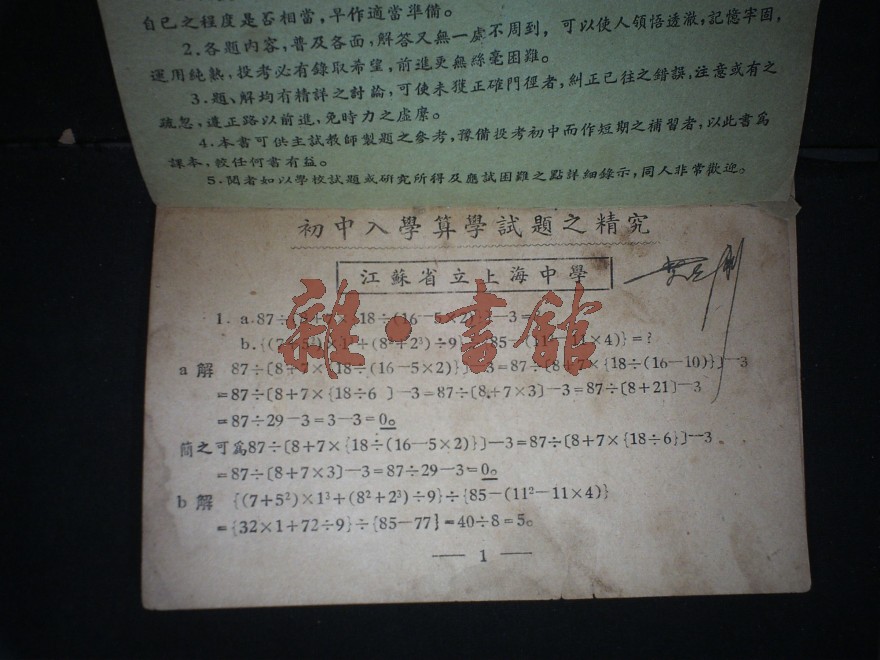 自已之程度是否相當，早作適當準備。
2.各題內容，普及各面，解答又無一處不周到，可以使人領悟透澈，記憶牢固，
運用純熟，投考必有錄取希望，前進更無絲毫困難。
3.題、解均有精詳之討論，可使未獲正確門徑者，糾正已往之錯誤，注意或有之
疏忽，遵正路以前進，免時力之虛縻。
4.本書可供主試教師製題之參考，豫備投考初中而作短期之補習者，以此書爲
課本，較任何書有益。
5.閱者如以學校試題或研究所得及應試困難之點詳細錄示，同人非常歡迎。
初中入學算學試題之精究
江蘇省立上海中學
雜·書館
1. a. 87÷〔8+7×{18÷(16—5×2)}〕—3=
b. {(7+5²)×1³+(8²+2³)÷9}÷{85—(11²—11×4)}=?
a 解 87÷〔8+7×{18÷(16—5×2)}〕—3=87÷〔8+7×{18÷(16—10)}〕—3
=87÷〔8+7×{18÷6}〕—3=87÷〔8+7×3〕—3=87÷〔8+21〕—3
=87÷29—3=3—3=0。
簡之可爲87÷〔8+7×{18÷(16—5×2)}〕—3=87÷〔8+7×{18÷6}〕—3
=87÷〔8+7×3〕—3=87÷29—3=0。
b 解 {(7+5²)×1³+(8²+2³)÷9}÷{85—(11²—11×4)}
={32×1+72÷9}÷{85—77}=40÷8=5。
— 1 —